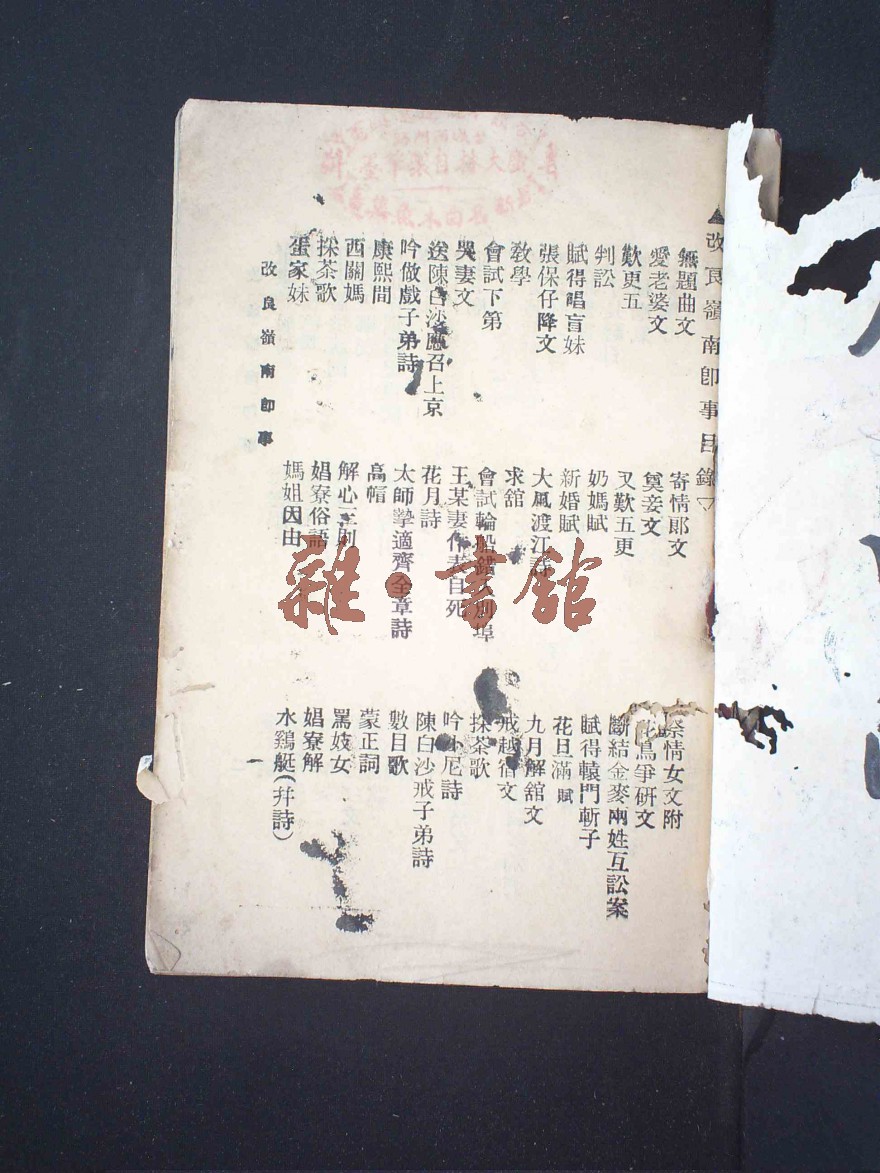 改良嶺南即事目錄
無題曲文
寄情郞文
祭情女文附
愛老婆文
奠妾文
鳥爭研文
歎更五
又歎五更
斷結金麥兩姓互訟案
判訟
奶媽賦
賦得轅門斬子
賦得唱盲妹
新婚賦
花旦滿賦
張保仔降文
大風渡江詩
九月解舘文
敎學
求舘
戒越宿文
會試下第
會試輪船
別埠
採茶歌
哭妻文
王某妻作表自死
吟小尼詩
送陳白沙應召上京
花月詩
陳白沙戒子弟詩
吟做戲子弟詩
太師摯適齊全章詩
數目歌
康熙間
高帽
蒙正詞
西關媽
解心三則
罵妓女
採茶歌
娼寮俗語
娼寮解
蛋家妹
媽姐因由
水鷄艇(幷詩)
改良嶺南即事
一
雜·書館